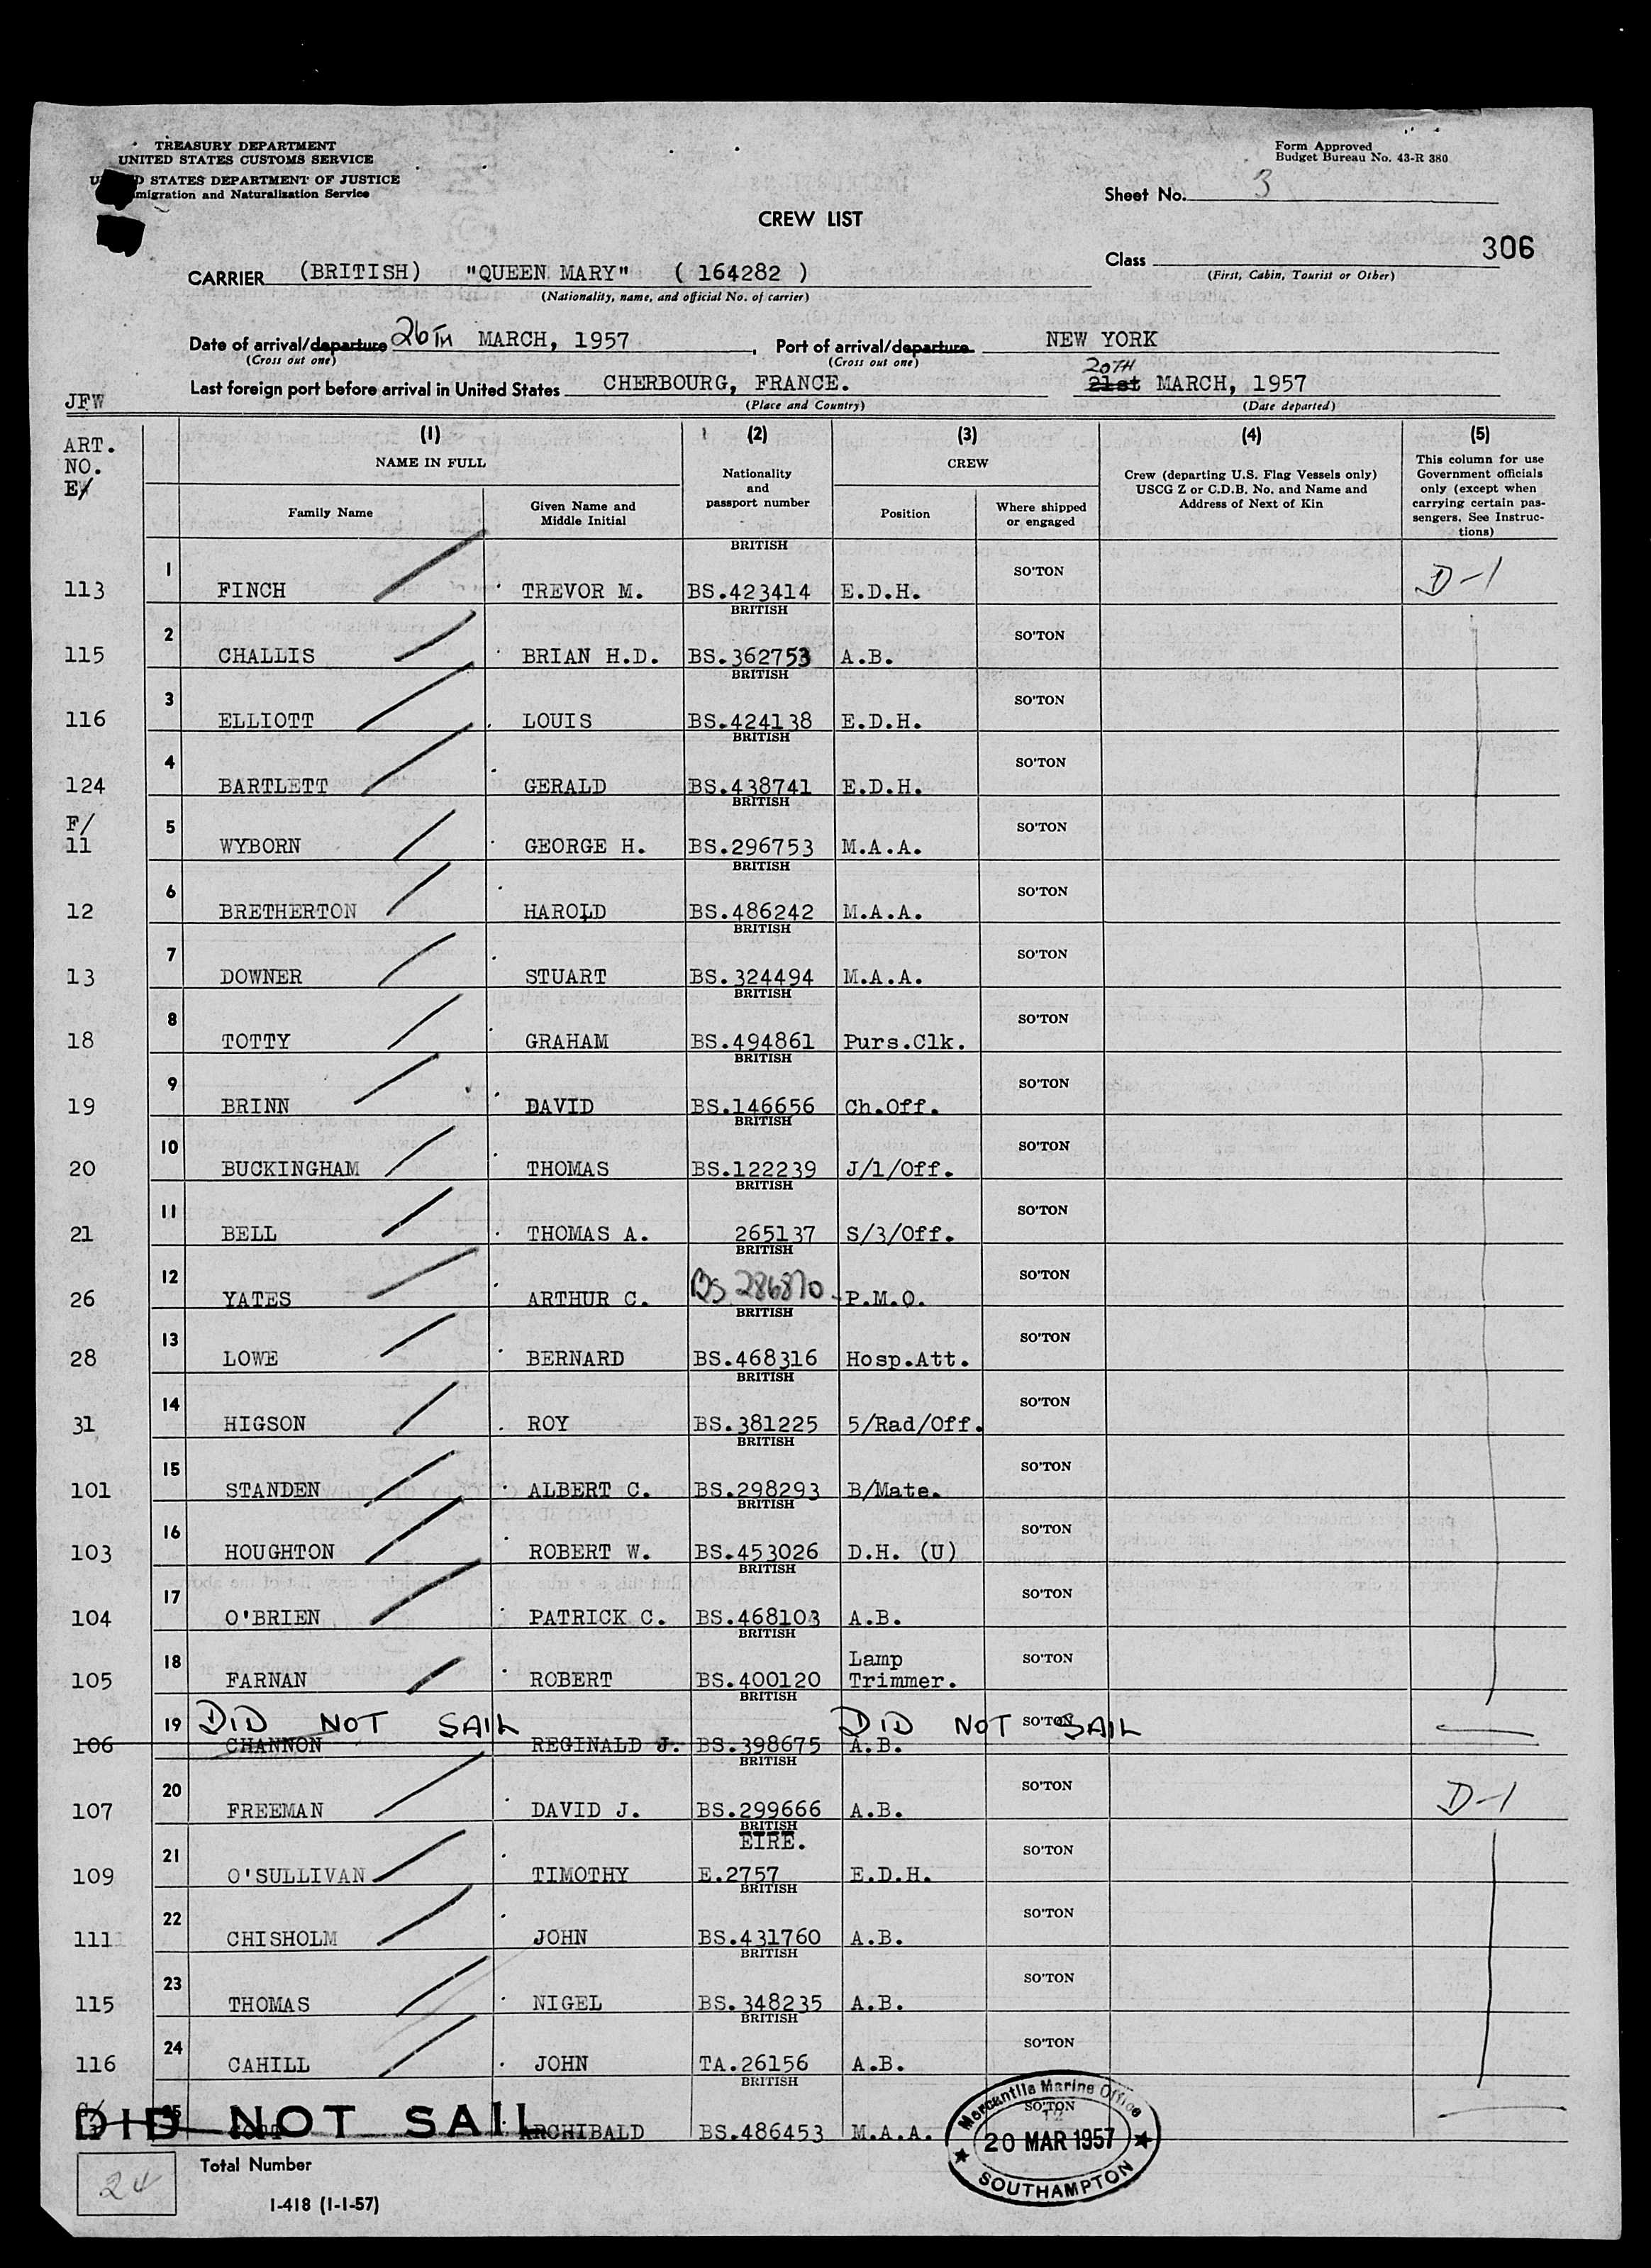 TREASURY DEPARTMENT
UNITED STATES CUSTOMS SERVICE
D STATES DEPARTMENT OF JUSTICE
migration and Naturalization Service
Form Approved
Budget Bureau No. 43-R 380
Sheet No. 3
CREW LIST
306
Class
(First, Cabin, Tourist or Other)
CARRIER (BRITISH) "QUEEN MARY" ( 164282 )
(Nationality, name, and official No. of carrier)
Date of arrival/departure 26TH MARCH, 1957, Port of arrival/departure NEW YORK
(Cross out one) (Cross out one)
20TH
Last foreign port before arrival in United States CHERBOURG, FRANCE. 21st MARCH, 1957
(Place and Country) (Date departed)
JFW
ART.
NO.
E/
(1) (2) (3) (4) (5)
NAME IN FULL
Nationality
and
passport number
CREW
Crew (departing U.S. Flag Vessels only)
USCG Z or C.D.B. No. and Name and
Address of Next of Kin
This column for use
Government officials
only (except when
carrying certain pas-
sengers. See Instruc-
tions)
Family Name
Given Name and
Middle Initial
Position
Where shipped
or engaged
BRITISH
113 1 FINCH TREVOR M. BS.423414 E.D.H. SO'TON D-1
BRITISH
115 2 CHALLIS BRIAN H.D. BS.362753 A.B. SO'TON
BRITISH
116 3 ELLIOTT LOUIS BS.424138 E.D.H. SO'TON
BRITISH
124 4 BARTLETT GERALD BS.438741 E.D.H. SO'TON
BRITISH
F/
11 5 WYBORN GEORGE H. BS.296753 M.A.A. SO'TON
BRITISH
12 6 BRETHERTON HAROLD BS.486242 M.A.A. SO'TON
BRITISH
13 7 DOWNER STUART BS.324494 M.A.A. SO'TON
BRITISH
18 8 TOTTY GRAHAM BS.494861 Purs.Clk. SO'TON
BRITISH
19 9 BRINN DAVID BS.146656 Ch.Off. SO'TON
BRITISH
20 10 BUCKINGHAM THOMAS BS.122239 J/1/Off. SO'TON
BRITISH
21 11 BELL THOMAS A. 265137 S/3/Off. SO'TON
BRITISH
26 12 YATES ARTHUR C. BS 286870 P.M.O. SO'TON
BRITISH
28 13 LOWE BERNARD BS.468316 Hosp.Att. SO'TON
BRITISH
31 14 HIGSON ROY BS.381225 5/Rad/Off. SO'TON
BRITISH
101 15 STANDEN ALBERT C. BS.298293 B/Mate. SO'TON
BRITISH
103 16 HOUGHTON ROBERT W. BS.453026 D.H. (U) SO'TON
BRITISH
104 17 O'BRIEN PATRICK C. BS.468103 A.B. SO'TON
BRITISH
105 18 FARNAN ROBERT BS.400120 Lamp Trimmer. SO'TON
BRITISH
DID NOT SAIL DID NOT SAIL
106 19 CHANNON REGINALD J. BS.398675 A.B. SO'TON
BRITISH
107 20 FREEMAN DAVID J. BS.299666 A.B. SO'TON D-1
BRITISH
EIRE.
109 21 O'SULLIVAN TIMOTHY E.2757 E.D.H. SO'TON
BRITISH
111 22 CHISHOLM JOHN BS.431760 A.B. SO'TON
BRITISH
115 23 THOMAS NIGEL BS.348235 A.B. SO'TON
BRITISH
116 24 CAHILL JOHN TA.26156 A.B. SO'TON
BRITISH
DID NOT SAIL
ARCHIBALD BS.486453 M.A.A. SO'TON
Mercantile Marine Office
20 MAR 1957
SOUTHAMPTON
24 Total Number
I-418 (1-1-57)